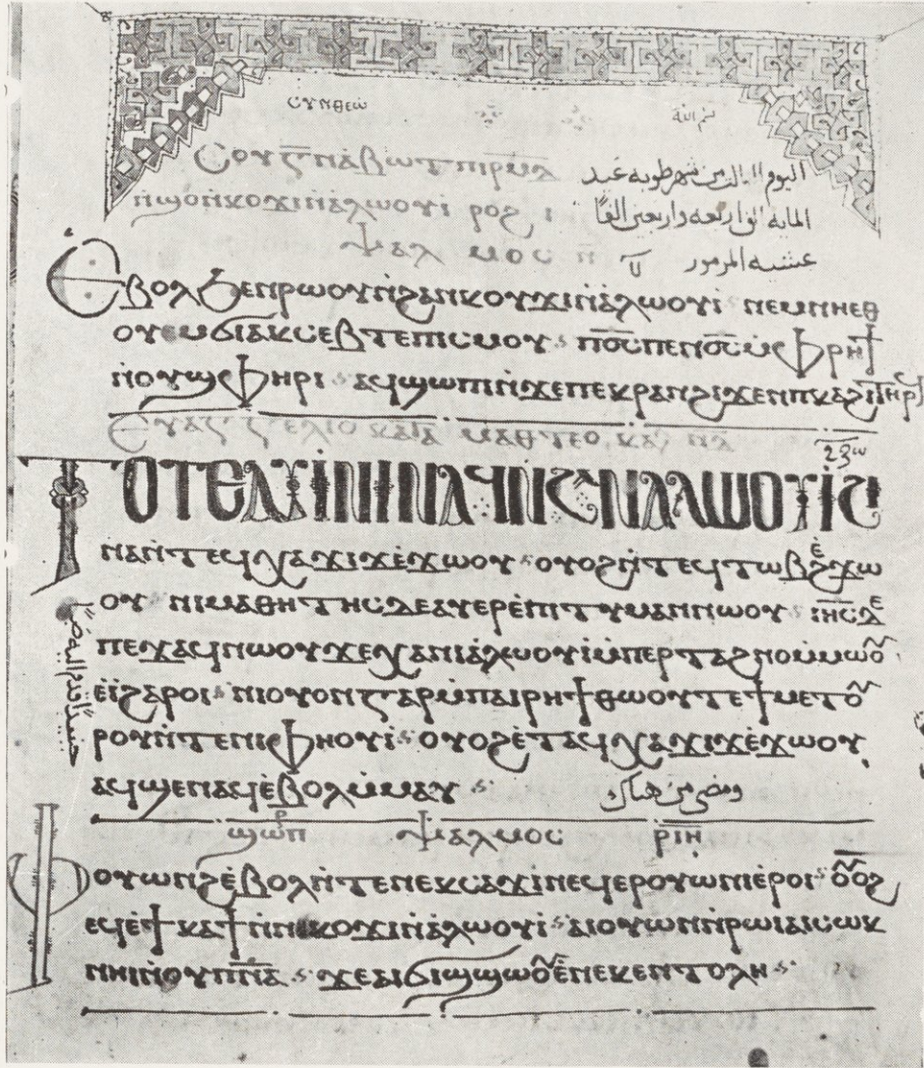 ⲥⲩⲛⲑⲉⲱ بسم الله
ⲥⲟⲩ ⲅ̅ ⲛⲁⲃⲱⲧ اليوم الثالث من شهر طوبه عيد
ⲛϣⲟ ⲛⲕⲟⲩϫⲓ ⲛⲁⲗⲱⲟⲩⲓ ⲣⲟϩⲓ المايه الف اربعه واربعين الفا
ⲯⲁⲗⲙⲟⲥ ⲏ̅ ٨ عشيه المزمور
Ⲉⲃⲟⲗϧⲉⲛⲣⲱⲟⲩⲛϩⲁⲛⲕⲟⲩϫⲓⲛⲁⲗⲱⲟⲩⲓ ⲛⲉⲙⲛⲏⲉⲑ
ⲟⲩⲉⲙϭⲓⲁⲕⲥⲉⲃⲧⲉⲡⲓⲥⲙⲟⲩ ⲡⲟ̅ⲥ̅ⲡⲉⲛⲟ̅ⲥ̅ⲙⲫⲣⲏϯ
ⲛⲟⲩϣⲫⲏⲣⲓ ⲁϥϣⲱⲡⲓⲛϫⲉⲡⲉⲕⲣⲁⲛϩⲓϫⲉⲛⲡⲕⲁϩⲓⲧⲏⲣϥ
Ⲉⲩⲁⲅⲅⲉⲗⲓⲟ ⲕⲁⲧⲁ ⲙⲁⲑⲑⲉⲟ
Ⲧⲟⲧⲉⲁⲩⲓⲛⲓⲛⲁϥⲛϩⲁⲛⲁⲗⲱⲟⲩⲓϩⲓ
ⲛⲁⲛⲧⲉϥⲭⲁϫⲓϫⲉ̀ϫⲱⲟⲩ ⲟⲩⲟϩⲛⲧⲉϥⲧⲱⲃϩⲉ̀ϫⲱ
ⲟⲩ ⲛⲓⲙⲁⲑⲏⲧⲏⲥⲇⲉⲁⲩⲉⲣⲉ̀ⲡⲓⲧⲓⲙⲁⲛⲛⲱⲟⲩ ⲓⲏ̅ⲥ̅ⲇⲉ
ⲡⲉϫⲁϥⲛⲱⲟⲩϫⲉⲭⲁⲛⲓⲁⲗⲱⲟⲩⲓⲙ̀ⲡⲉⲣⲧⲁϩⲛⲟⲙ̀ⲙⲱⲟⲩ
ⲉ̀ⲓϩⲁⲣⲟⲓ ⲛⲓⲟⲩⲟⲛⲅⲁⲣⲙ̀ⲡⲁⲓⲣⲏϯⲑⲱⲟⲩⲧⲉϯⲙⲉⲧⲟⲩ
ⲣⲟⲛ̀ⲧⲉⲛⲓⲫⲏⲟⲩⲓ̀ ⲟⲩⲟϩⲉ̀ⲧⲁϥⲭⲁϫⲓϫⲉ̀ϫⲱⲟⲩ
ⲁϥϣⲉⲛⲁϥⲉ̀ⲃⲟⲗⲙ̀ⲙⲁⲩ ومضى من هناك
ϣⲱⲣⲡ ⲯⲁⲗⲙⲟⲥ ⲣⲓⲏ̅
Ⲫⲟⲩⲱⲛϩⲉ̀ⲃⲟⲗⲛ̀ⲧⲉⲛⲉⲕⲥⲁϫⲓⲛⲉϥⲉⲣⲟⲩⲱⲓⲛⲓⲉ̀ⲣⲟⲓ ⲟⲩⲟϩ
ⲉϥⲉ̀ϯⲕⲁϯⲛ̀ⲛⲓⲕⲟⲩϫⲓⲛ̀ⲁⲗⲱⲟⲩⲓ̀ ⲁⲓⲟⲩⲱⲛⲛ̀ⲣⲱⲓⲁⲓⲥⲱⲕ
ⲛⲏⲓⲛ̀ⲟⲩⲡ̅ⲛ̅ⲁ̅ ϫⲉⲁⲓϭⲓϣϣⲱⲟⲩⲉ̀ⲛⲉⲕⲉⲛⲧⲟⲗⲏ